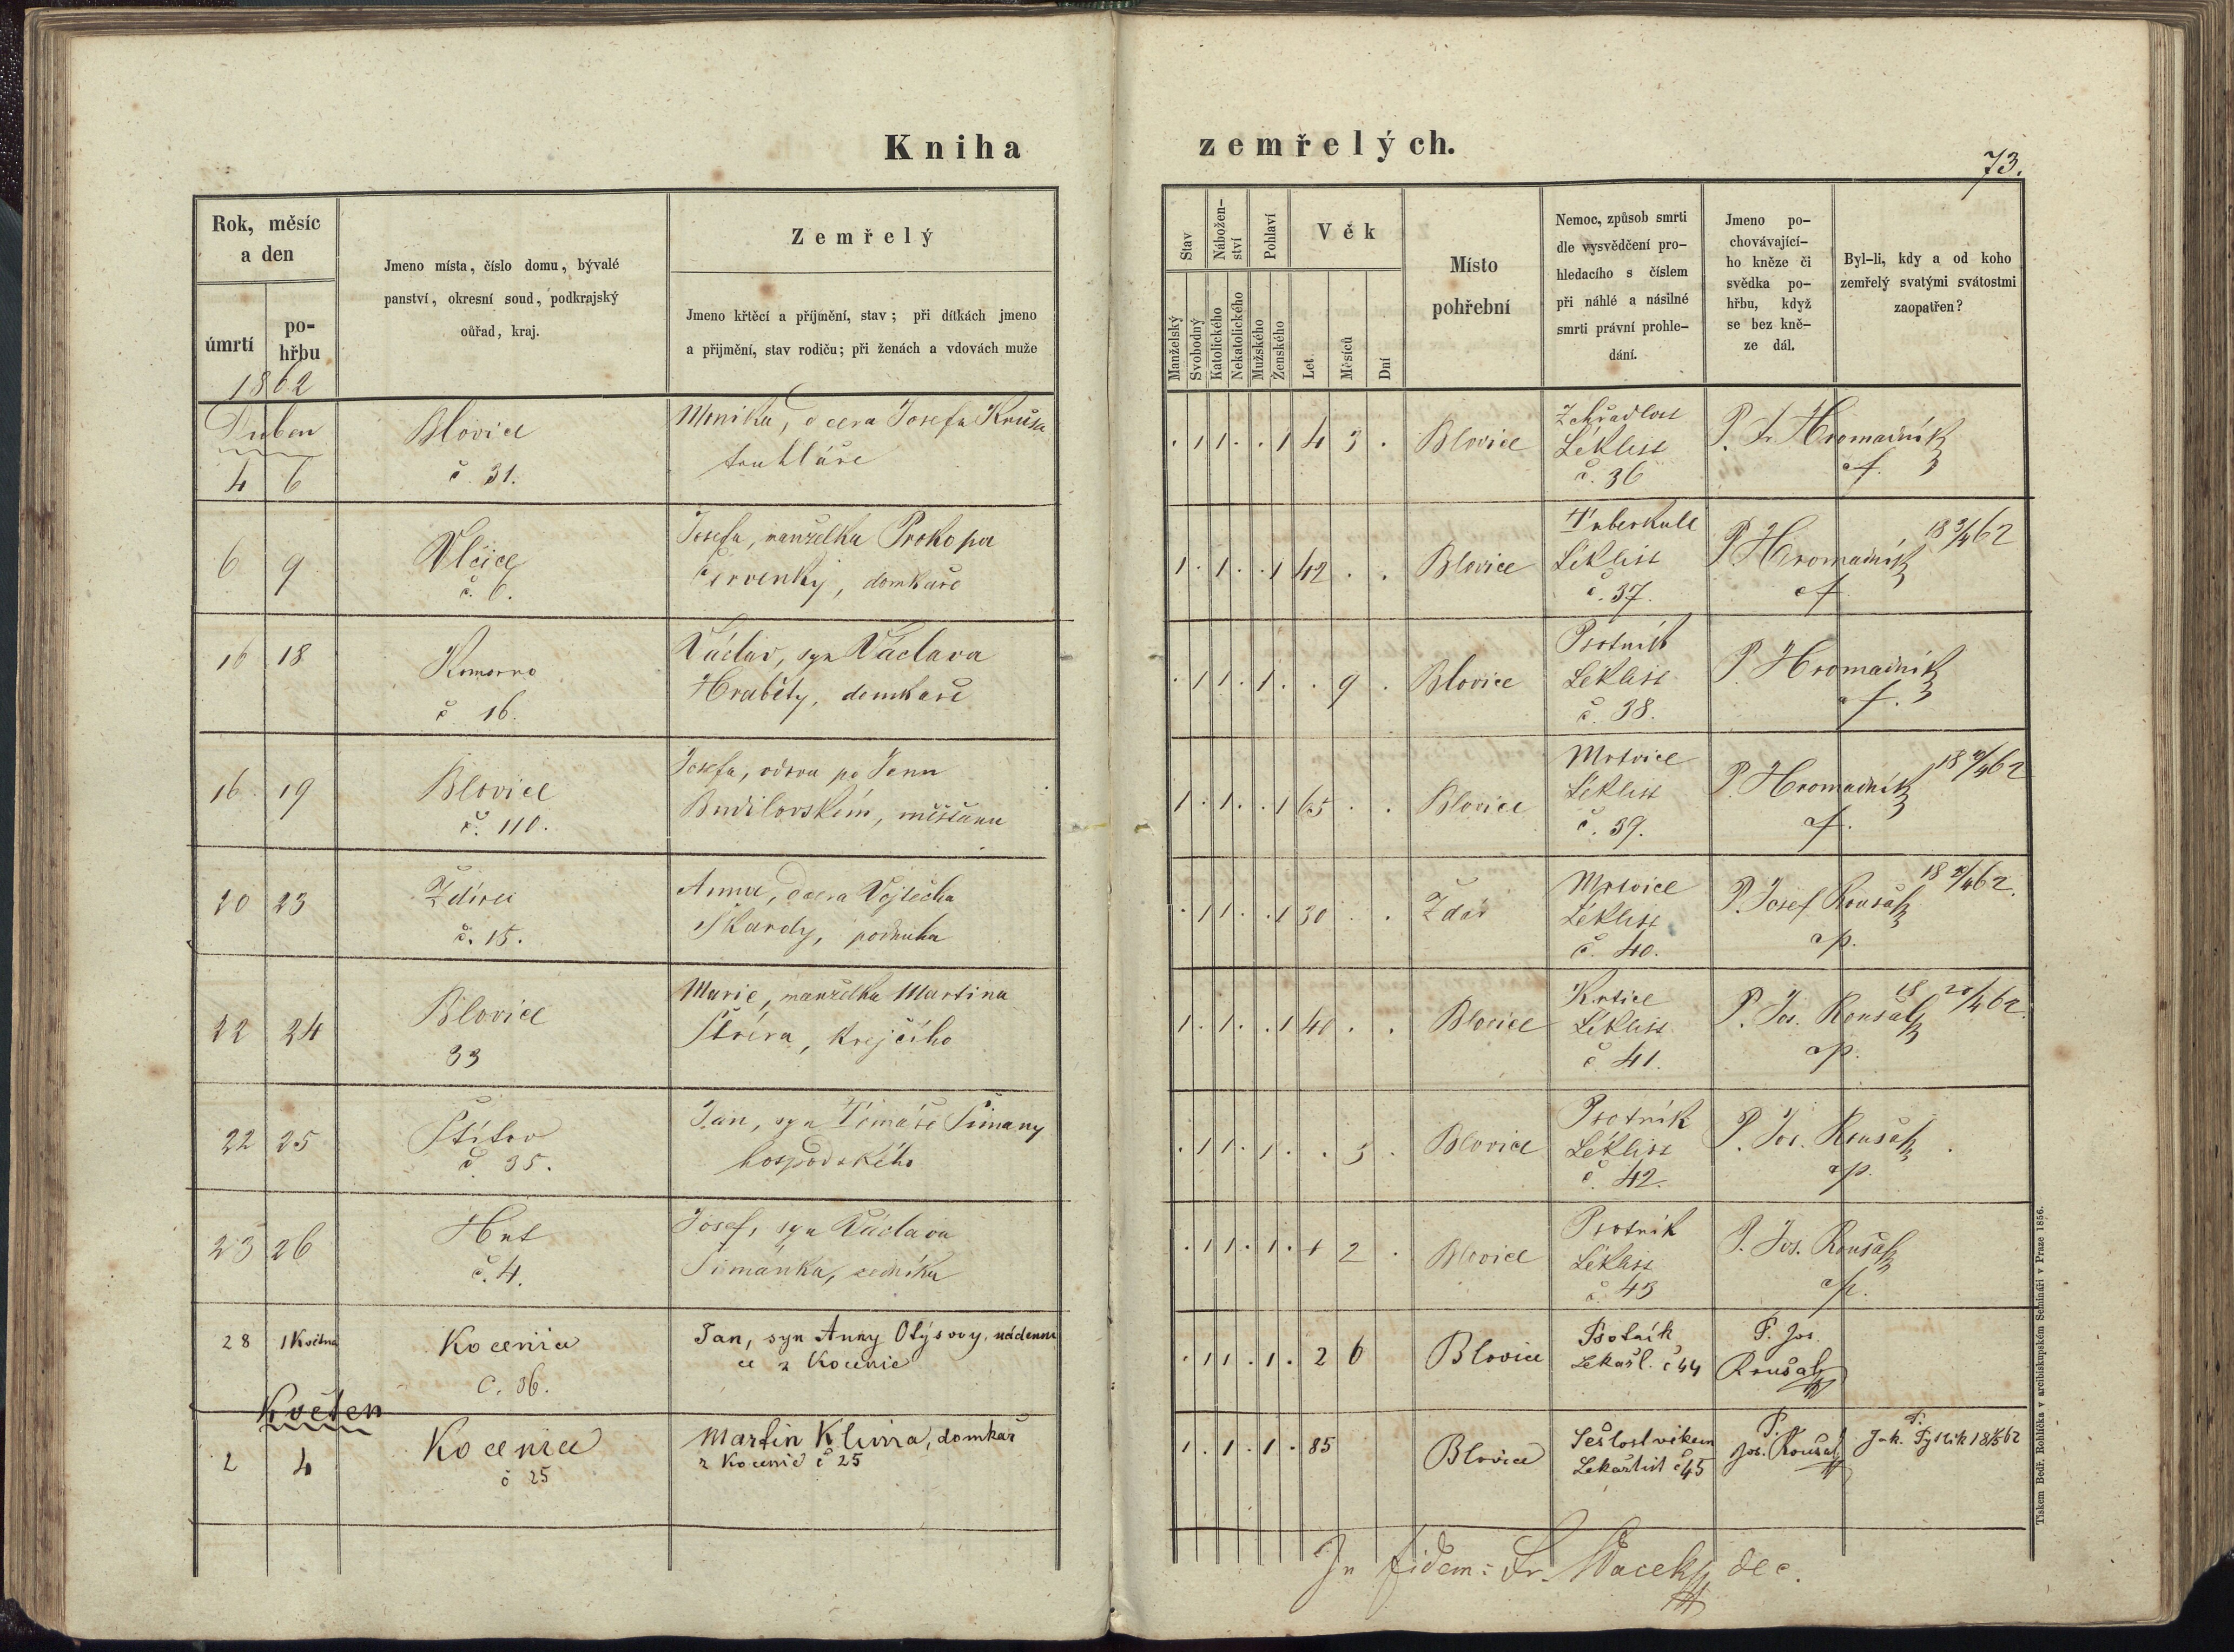 Kniha zemřelých.
73.
Rok, měsíc
a den
úmrtí
po-
hřbu
1862
Jmeno místa, číslo domu, bývalé
panství, okresní soud, podkrajský
ouřad, kraj.
Zemřelý
Jmeno křtěcí a příjmění, stav; při dítkách jmeno
a přijmění, stav rodiču; při ženách a vdovách muže
Stav
Nábožen-
ství
Pohlaví
Věk
Manželský
Svobodný
Katolického
Nekatolického
Mužského
Ženského
Let
Měsíců
Dní
Místo
pohřební
Nemoc, způsob smrti
dle vysvědčení pro-
hledacího s číslem
při náhlé a násilné
smrti právní prohle-
dání.
Jmeno po-
chovávající-
ho kněze či
svědka po-
hřbu, když
se bez kně-
ze dál.
Byl-li, kdy a od koho
zemřelý svatými svátostmi
zaopatřen?
Duben
4 6
Blovice
č. 31.
Monika, dcera Josefa
truhláře
. 1 1 . . 1 4 3 .
Blovice
Léklist
č. 36
P. Fr Hromadník
6 9
Vlčice
č. 6.
Josefa, manželka Prokopa
Červenky, domkáře
1 . 1 . . 1 42 . .
Blovice
Tuberkule
Léklist
č. 37.
P Hromadník
18 9/4 62
16 18
Komorno
č 16.
Václav, syn Václava
Hraběty, domkáře
. 1 1 . 1 . . 9 .
Blovice
Psotník
Léklist
č. 38.
P. Hromadník
16 19
Blovice
č. 110.
Josefa, vdova po Janu
Budilovském, měšťanu
1 . 1 . . 1 65 . .
Blovice
Mrtvice
Léklist
č. 39.
P. Hromadník
20 23
Ždírec
č. 15.
Anna, dcera Vojtěcha
Škardy, podruha
. 1 1 . . 1 30 . .
Žďár
Mrtvice
Léklist
č. 40.
P. Josef Roušal
22 24
Blovice
33
Marie, manželka Martina
krejčího
1 . 1 . . 1 40 . .
Blovice
Léklist
č 41.
P. Jos. Roušal
22 25
Štítov
č 35.
Jan, syn Tomáše Šimany
hospodského
. 1 1 . 1 . . 3 .
Blovice
Psotník
Léklist
č. 42.
P. Jos. Roušal
23 26
Hút
č. 4.
Josef, syn Václava
Šimánka, sedníka
. 1 1 . 1 . 1 2 .
Blovice
Psotník
Léklist
č. 43
P. Jos. Roušal
28 1 Května
Kocenice
č. 36.
Jan, syn Anny Otýsovy, nádenni
ce z Kocenic
. 1 1 . 1 . 2 6
Blovice
Psotník
Lékařl. č 44
P. Jos.
Roušal
Květen
2 4
Kocenice
č 25
Martin Klima, domkář
z Kocenic č 25
1 . 1 . 1 . 85
Blovice
Sešlost věkem
Lékařlist č 45
P.
Jos. Roušal
In fidem: Fr. Vacek dec.
Tiskem Bedř. Rohlíčka v arcibiskupském Semináři v Praze 1856.